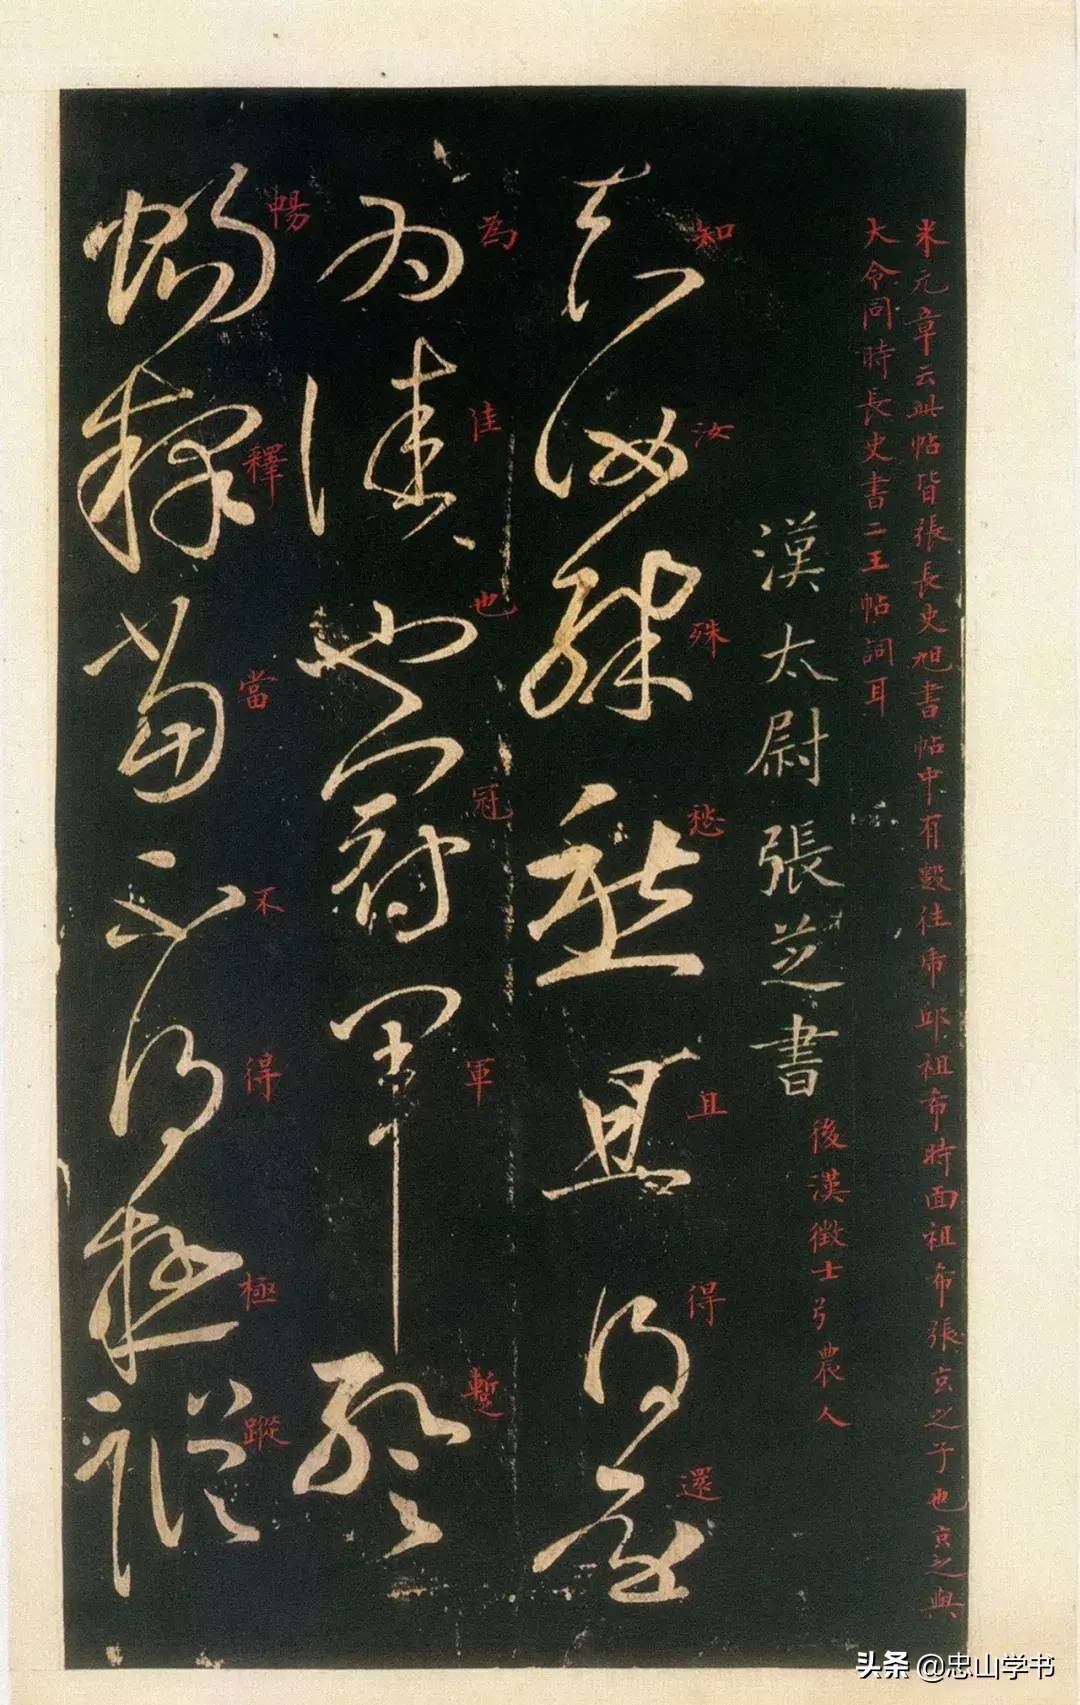 米元章云此帖皆張長史旭書帖中有數往虎邱祖希時面祖希張玄之子也玄之與
大令同時長史書二王帖詞耳
漢太尉張芝書
後漢徵士弓農人
知汝殊愁且得還
知汝殊愁且得還
為佳也冠軍蹔
為佳也冠軍蹔
暢釋當不得極蹤
暢釋當不得極蹤
头条 @忠山学书